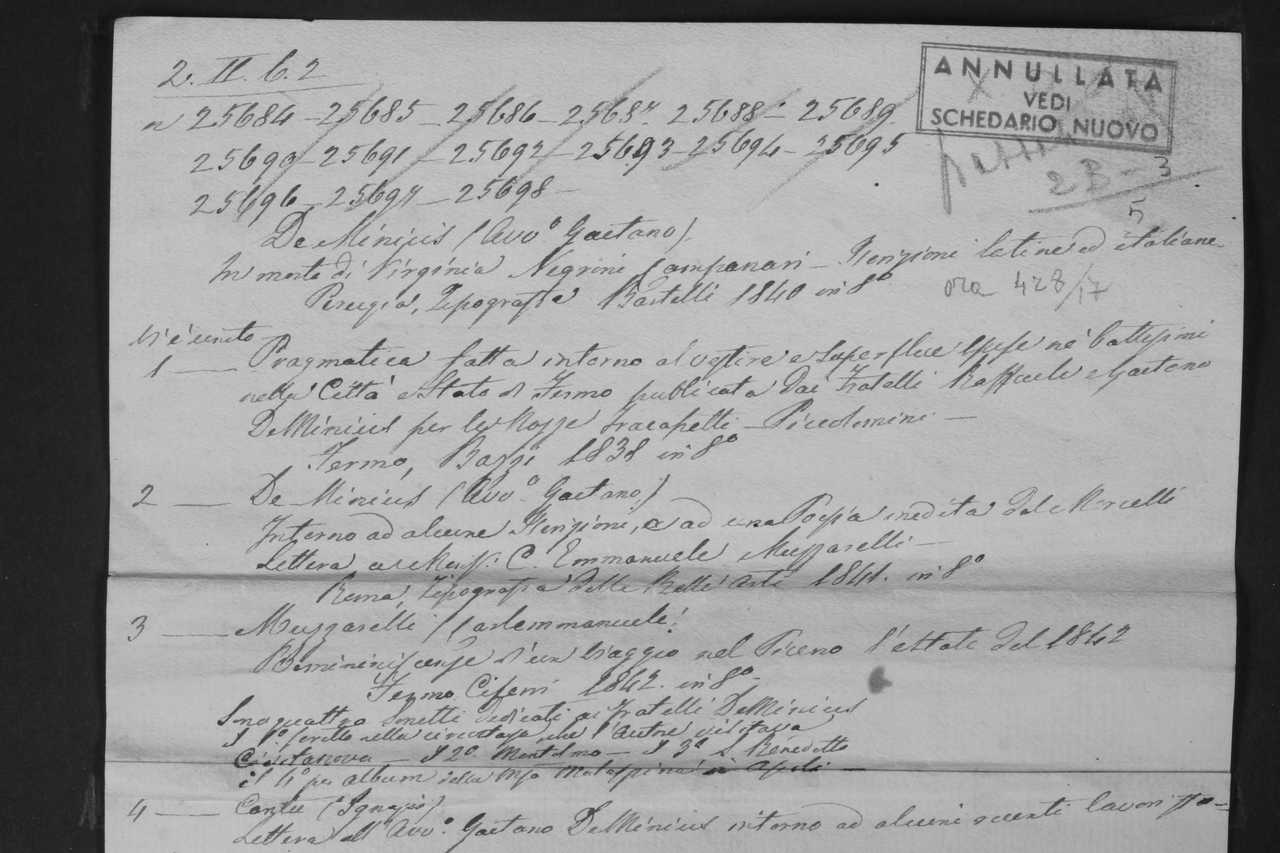 2. II. C. 2
ANNULLATA
VEDI
SCHEDARIO NUOVO
n 25684 - 25685 - 25686 - 25687 - 25688 - 25689
25690 - 25691 - 25692 - 25693 - 25694 - 25695
25696 - 25697 - 25698 -
2 B - 3
5
De Minicis (Avv.º Gaetano)
In morte di Virginia Negrini Campanari - Iscrizioni latine ed italiane
Perugia, Tipografia Bartelli 1840 in 8º
ora 428/17
Vi è unito
1 — Pragmatica fatta intorno al vestire e superflue spese ne' battesimi
nella Città e Stato di Fermo publicata dai Fratelli Raffaele e Gaetano
De Minicis per le Nozze Fracapelli - Piccolomini -
Fermo, Bazzi 1838 in 8º
2 — De Minicis (Avv.º Gaetano)
Intorno ad alcune Iscrizioni, e ad una Poesia inedita del Morcelli
Lettera a C. Emmanuele Muzzarelli -
Roma, Tipografia delle Belle Arti 1841. in 8º
3 — Muzzarelli Carlemmanuele
Reminiscenze d'un viaggio nel Piceno l'estate del 1842
Fermo Ciferri 1842. in 8º -
Sono quattro Sonetti dedicati ai Fratelli De Minicis
Il 1º scritto nella circostanza che l'autore visitava
Civitanova - Il 2º Montolmo - Il 3º S. Benedetto
il 4º per album della Mssa Malaspina in Ascoli -
4 — Cantù (Ignazio)
Lettera all'Avv.º Gaetano De Minicis intorno ad alcuni recenti lavori